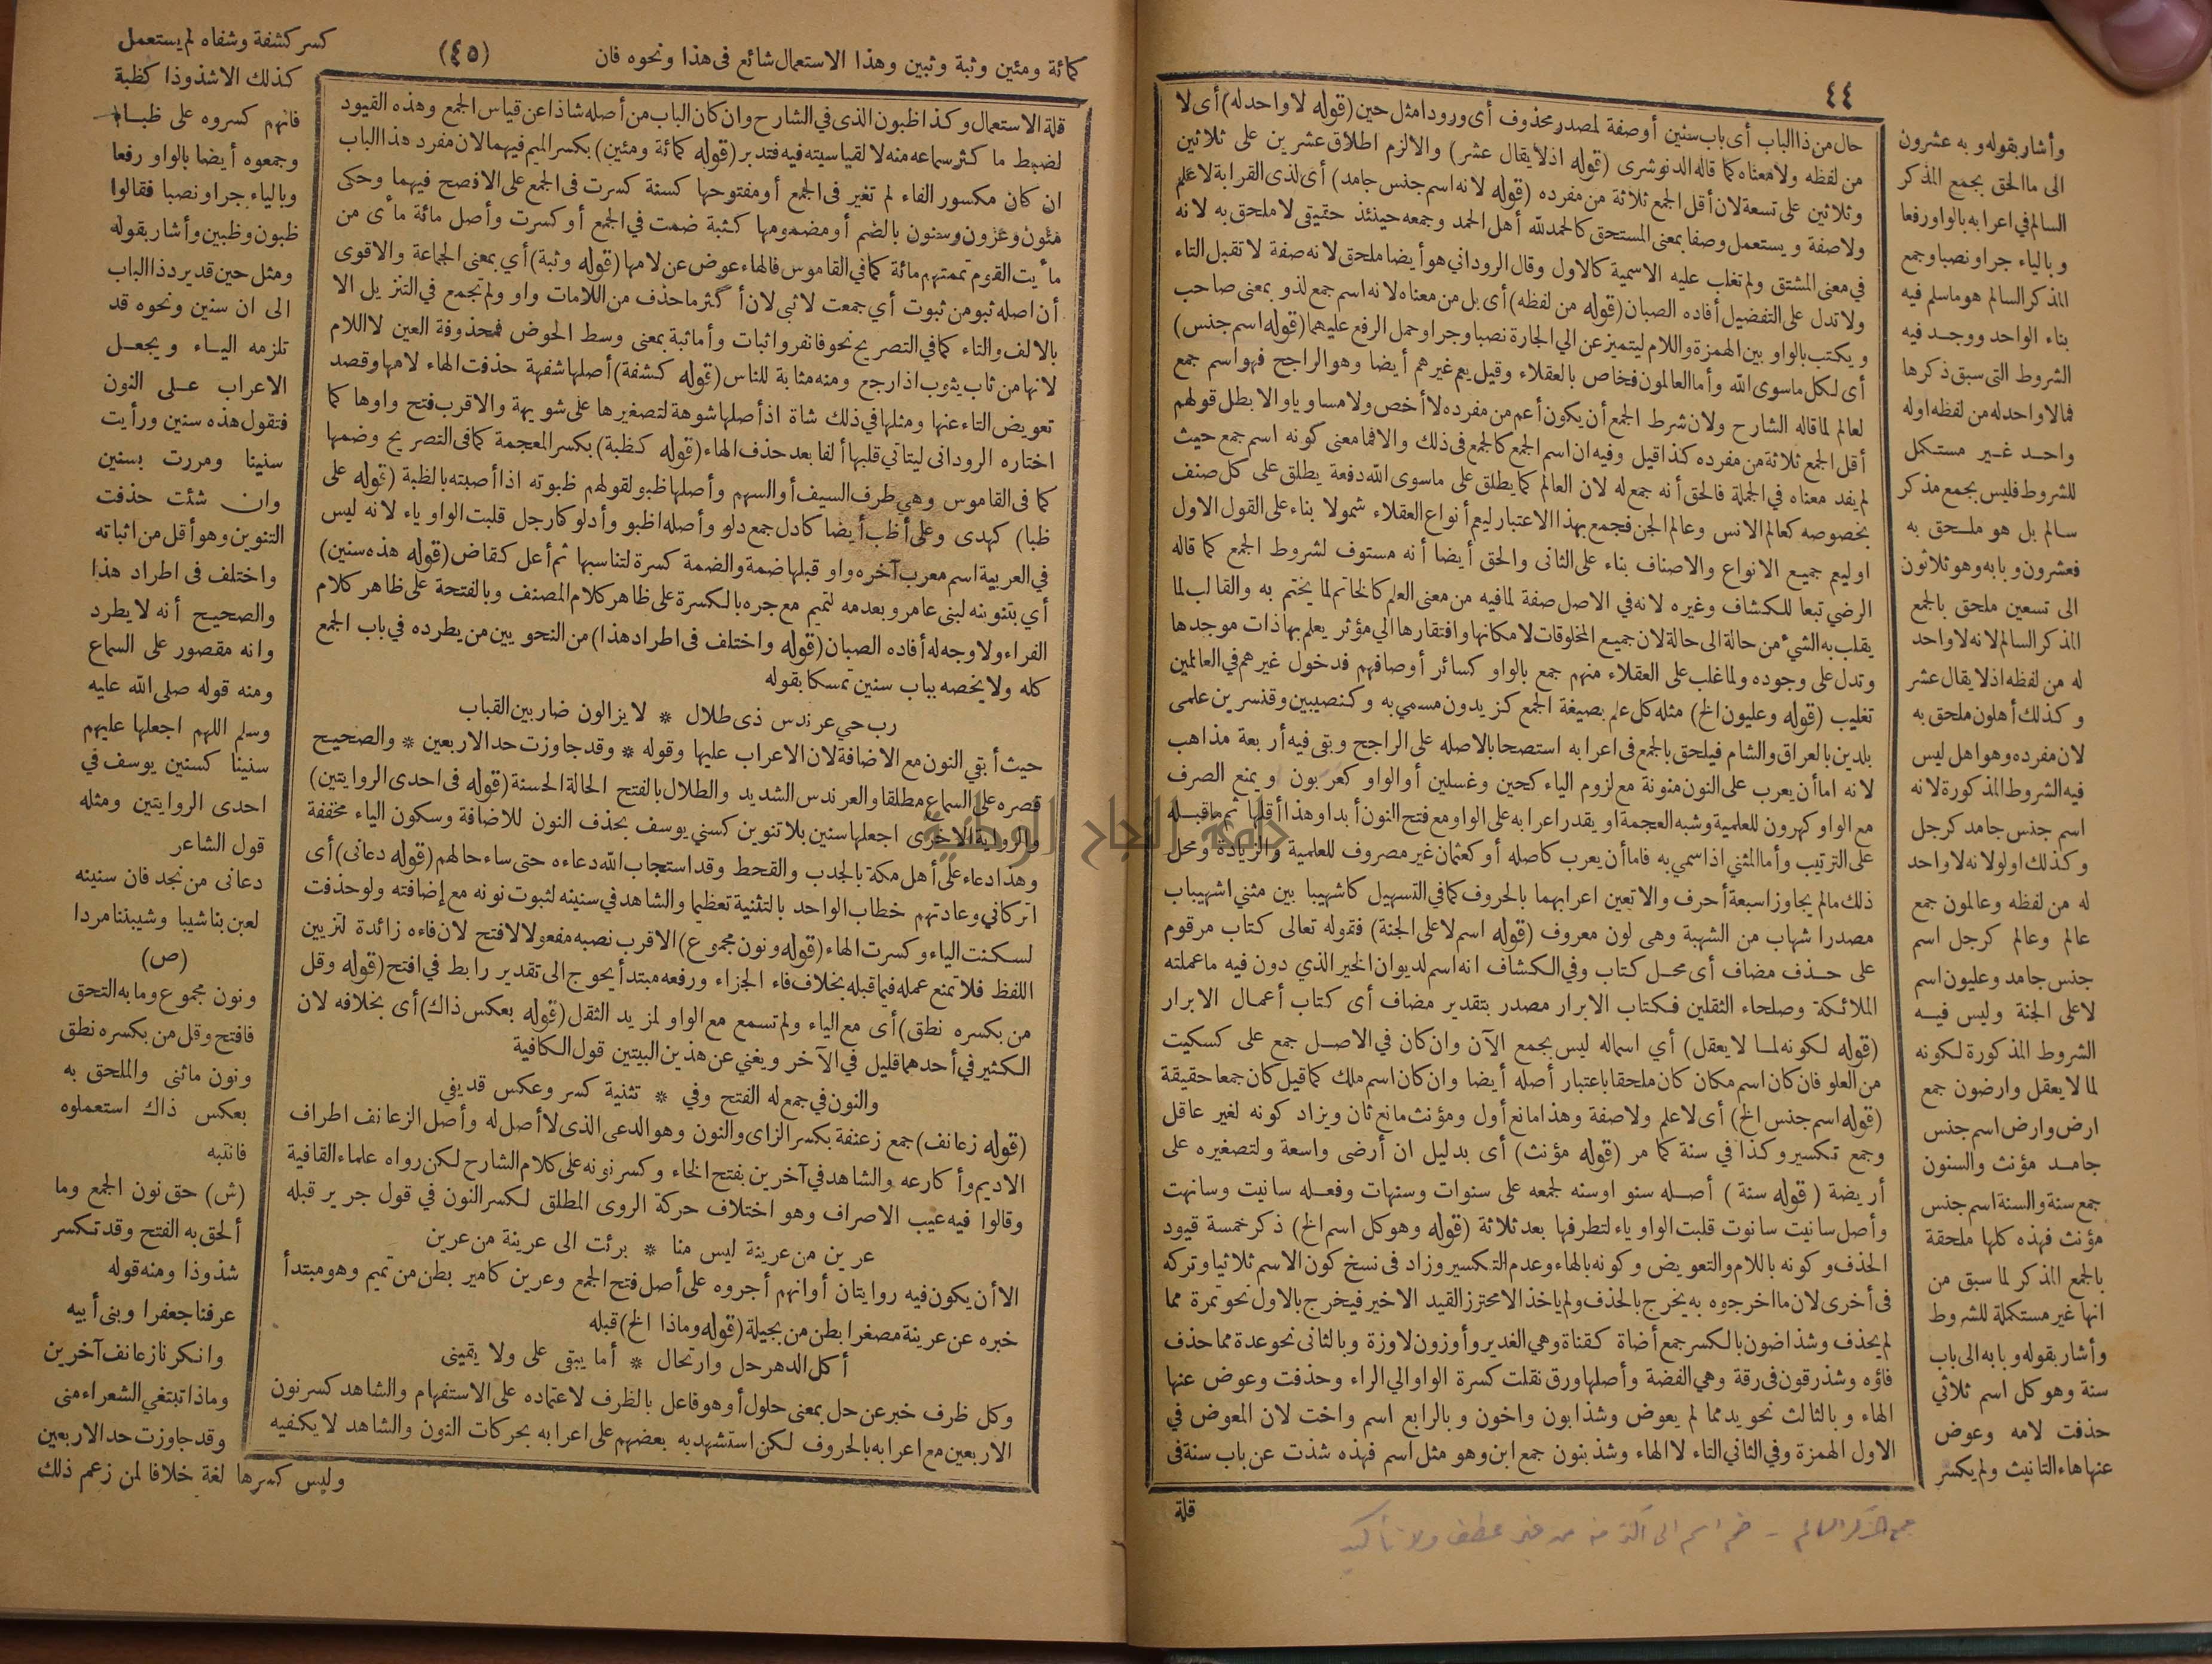 ٤٤
وأشار بقوله و به عشرون
الى ماالحق بجمع المذكر
السالم في اعرابه بالواو رفعا
وبالياء جراونصباوجمع
المذكر السالم هوماسلم فيه
بناء الواحد ووجد فيه
الشروط التى سبق ذكرها
فمالا واحدله من لفظه اوله
واحد غير مستكمل
للشروط فليس بجمع مذكر
سالم بل هو ملحق به
فعشرون و بابه وهو ثلاثون
الى تسعين ملحق بالجمع
المذكر السالم لانه لا واحد
له من لفظه اذلا يقال عشر
وكذلك أهلون ملحق به
لان مفرده وهو اهل ليس
فيه الشروط المذكورة لانه
اسم جنس جامد كرجل
وكذلك اولو لانه لا واحد
له من لفظه وعالمون جمع
عالم وعالم كرجل اسم
جنس جامد وعليون اسم
لاعلى الجنة وليس فيه
الشروط المذكورة لكونه
لما لا يعقل وارضون جمع
ارض وارض اسم جنس
جامد مؤنث والسنون
جمع سنة والسنة اسم جنس
مؤنث فهذه كلها ملحقة
بالجمع المذكر لما سبق من
انها غير مستكملة للشروط
وأشار بقوله و بابه الى باب
سنة وهو كل اسم ثلاثي
حذفت لامه وعوض
عنها هاء التانيث ولم يكسر
حال من ذا الباب أى باب سنين أوصفة لمصدر محذوف أى ورودا مثل حين (قوله لا واحد له) أى لا
من لفظه ولا معناه كما قاله الدنوشرى (قوله اذلا يقال عشر) والالزم اطلاق عشرين على ثلاثين
وثلاثين على تسعة لان أقل الجمع ثلاثة من مفرده (قوله لانه اسم جنس جامد) أى لذى القرابة لا علم
ولا صفة و يستعمل وصفا بمعنى المستحق كالحمدلله أهل الحمد وجمعه حينئذ حقيقى لا ملحق به لانه
في معنى المشتق ولم تغلب عليه الاسمية كالاول وقال الرودانى هو أيضا ملحق لانه صفة لا تقبل التاء
ولا تدل على التفضيل أفاده الصبان (قوله من لفظه) أى بل من معناه لانه اسم جمع لذو بمعنى صاحب
ويكتب بالواو بين الهمزة واللام ليتميز عن الى الجارة نصبا وجرا وحمل الرفع عليهما (قوله اسم جنس)
أى لكل ماسوى الله وأما العالمون فخاص بالعقلاء وقيل يعم غيرهم أيضا وهو الراجح فهو اسم جمع
لعالم لما قاله الشارح ولان شرط الجمع أن يكون أعم من مفرده لا أخص ولا مساويا والا بطل قولهم
أقل الجمع ثلاثة من مفرده كذا قيل وفيه ان اسم الجمع كالجمع فى ذلك والا فما معنى كونه اسم جمع حيث
لم يفد معناه في الجملة فالحق أنه جمع له لان العالم كما يطلق على ماسوى الله دفعة يطلق على كل صنف
بخصوصه كعالم الانس وعالم الجن فجمع بهذا الاعتبار ليعم أنواع العقلاء شمولا بناء على القول الاول
او ليعم جميع الانواع والاصناف بناء على الثانى والحق أيضا أنه مستوف لشروط الجمع كما قاله
الرضى تبعا للكشاف وغيره لانه في الاصل صفة لما فيه من معنى العلم كالخاتم لما يختم به والقالب لما
يقلب به الشئ من حالة الى حالة لان جميع المخلوقات لامكانها وافتقارها الي مؤثر يعلم بها ذات موجدها
وتدل على وجوده ولما غلب على العقلاء منهم جمع بالواو كسائر أوصافهم فدخول غيرهم في العالمين
تغليب (قوله وعليون الخ) مثله كل علم بصيغة الجمع كزيدون مسمي به وكنصيبين وقنسرين علمى
بلدين بالعراق والشام فيلحق بالجمع فى اعرابه استصحابا لاصله على الراجح وبقى فيه أربعة مذاهب
لانه اما أن يعرب على النون منونة مع لزوم الياء كحين وغسلين أو الواو كعربون و يمنع الصرف
مع الواو كهرون للعلمية وشبه العجمة او يقدر اعرابه على الواو مع فتح النون أبدا وهذا أقلها ثم ما قبله
على الترتيب وأما المثني اذا سمي به فاما أن يعرب كاصله أو كعثمان غير مصروف للعلمية والزيادة ومحل
ذلك مالم يجاوز اسبعة أحرف والا تعين اعرابهما بالحروف كما في التسهيل كاشهيبا بين مثني اشهيباب
مصدر اشهاب من الشهبة وهى لون معروف (قوله اسم لاعلى الجنة) فقوله تعالى كتاب مرقوم
على حذف مضاف أى محل كتاب وفي الكشاف انه اسم لديوان الخير الذي دون فيه ما عملته
الملائكة وصلحاء الثقلين فكتاب الابرار مصدر بتقدير مضاف أى كتاب أعمال الابرار
(قوله لكونه لما لا يعقل) أي اسما له ليس بجمع الآن وان كان في الاصل جمع على كسكيت
من العلو فان كان اسم مكان كان ملحقا باعتبار أصله أيضا وان كان اسم ملك كما قيل كان جمعا حقيقة
(قوله اسم جنس الخ) أى لا علم ولا صفة وهذا مانع أول ومؤنث مانع ثان ويزاد كونه لغير عاقل
وجمع تكسير وكذا في سنة كما مر (قوله مؤنث) أى بدليل ان أرضى واسعة ولتصغيره على
أريضة (قوله سنة) أصله سنو او سنه لجمعه على سنوات وسنهات وفعله سانيت وسانهت
وأصل سانيت سانوت قلبت الواو ياء لتطرفها بعد ثلاثة (قوله وهو كل اسم الخ) ذكر خمسة قيود
الحذف وكونه باللام والتعويض وكونه بالهاء وعدم التكسير وزاد فى نسخ كون الاسم ثلاثيا وتركه
فى أخرى لان ما اخرجوه به يخرج بالحذف ولم ياخذ الا محترز القيد الاخير فيخرج بالاول نحو تمرة مما
لم يحذف وشذ اضون بالكسر جمع أضاة كقناة وهي الغدير وأوزون لاوزة وبالثانى نحو عدة مما حذف
فاؤه وشذ رقون فى رقة وهي الفضة وأصلها ورق نقلت كسرة الواو الي الراء وحذفت وعوض عنها
الهاء وبالثالث نحو يد مما لم يعوض وشذ ابون واخون وبالرابع اسم واخت لان المعوض في
الاول الهمزة وفي الثاني التاء لا الهاء وشذ بنون جمع ابن وهو مثل اسم فهذه شذت عن باب سنة فى
قلة
(٤٥)
كمائة ومئين وثبة وثبين وهذا الاستعمال شائع فى هذا ونحوه فان
كسر كشفة وشفاه لم يستعمل
كذلك الا شذوذا كظبة
فانهم كسروه على ظباء
وجمعوه أيضا بالواو رفعا
وبالياء جرا ونصبا فقالوا
ظبون وظبين وأشار بقوله
ومثل حين قد يرد ذا الباب
الى ان سنين ونحوه قد
تلزمه الياء ويجعل
الاعراب على النون
فتقول هذه سنين ورأيت
سنينا ومررت بسنين
وان شئت حذفت
التنوين وهو أقل من اثباته
واختلف فى اطراد هذا
والصحيح أنه لا يطرد
وانه مقصور على السماع
ومنه قوله صلى الله عليه
وسلم اللهم اجعلها عليهم
سنينا كسنين يوسف في
احدى الروايتين ومثله
قول الشاعر
دعانى من نجد فان سنينه
لعبن بنا شيبا وشيبننا مردا
(ص)
ونون مجموع وما به التحق
فافتح وقل من بكسره نطق
ونون ماثنى والملحق به
بعكس ذاك استعملوه
فانتبه
(ش) حق نون الجمع وما
ألحق به الفتح وقد تكسر
شذوذا ومنه قوله
عرفنا جعفرا وبنى أبيه
وانكرنا زعانف آخرين
وماذا تبتغي الشعراء منى
وقد جاوزت حد الاربعين
وليس كسرها لغة خلافا لمن زعم ذلك
قلة الاستعمال وكذا ظبون الذى في الشارح وان كان الباب من أصله شاذا عن قياس الجمع وهذه القيود
لضبط ما كثر سماعه منه لا لقياسيته فيه فتدبر (قوله كمائة ومئين) بكسر الميم فيهما لان مفرد هذا الباب
ان كان مكسور الفاء لم تغير فى الجمع أو مفتوحها كسنة كسرت فى الجمع على الافصح فيهما وحكى
مئون وعزون وسنون بالضم أو مضمومها كثبة ضمت في الجمع أو كسرت وأصل مائة مأى من
مأيت القوم تممتهم مائة كما في القاموس فالهاء عوض عن لامها (قوله وثبة) أي بمعنى الجماعة والاقوى
أن اصله ثبو من ثبوت أي جمعت لا ثبى لان أكثر ما حذف من اللامات واو ولم تجمع في التنزيل الا
بالالف والتاء كما في التصريح نحو فانفروا ثبات وأما ثبة بمعنى وسط الحوض فمحذوفة العين لا اللام
لانها من ثاب يثوب اذا رجع ومنه مثابة للناس (قوله كشفة) أصلها شفهة حذفت الهاء لامها وقصد
تعويض التاء عنها ومثلها في ذلك شاة اذ أصلها شوهة لتصغيرها على شويهة والاقرب فتح واوها كما
اختاره الرودانى ليتاتي قلبها ألفا بعد حذف الهاء (قوله كظبة) بكسر المعجمة كما فى التصريح وضمها
كما فى القاموس وهي طرف السيف أو السهم وأصلها ظبو لقولهم ظبوته اذا أصبته بالظبة (قوله على
ظبا) كهدى وعلى أظب أيضا كادل جمع دلو وأصله اظبو وأدلو كارجل قلبت الواو ياء لانه ليس
في العربية اسم معرب آخره واو قبلها ضمة والضمة كسرة لتناسبها ثم أعل كقاض (قوله هذه سنين)
أي بتنوينه لبنى عامر وبعدمه لتميم مع جره بالكسرة على ظاهر كلام المصنف وبالفتحة على ظاهر كلام
الفراء ولا وجه له أفاده الصبان (قوله واختلف فى اطراد هذا) من النحويين من يطرده في باب الجمع
كله ولا يخصه بباب سنين تمسكا بقوله
رب حي عرندس ذى طلال * لا يزالون ضاربين القباب
حيث أبقي النون مع الاضافة لان الاعراب عليها وقوله * وقد جاوزت حد الاربعين * والصحيح
قصره على السماع مطلقا والعرندس الشديد والطلال بالفتح الحالة الحسنة (قوله فى احدى الروايتين)
والرواية الاخرى اجعلها سنين بلا تنوين كسني يوسف بحذف النون للاضافة وسكون الياء مخففة
وهذا دعاء على أهل مكة بالجدب والقحط وقد استجاب الله دعاءه حتى ساء حالهم (قوله دعانى) أى
اتركاني وعادتهم خطاب الواحد بالتثنية تعظيما والشاهد في سنينه لثبوت نونه مع إضافته ولو حذفت
لسكنت الياء وكسرت الهاء (قوله ونون مجموع) الاقرب نصبه مفعولا لافتح لان فاءه زائدة لتزيين
اللفظ فلا تمنع عمله فيما قبله بخلاف فاء الجزاء ورفعه مبتدأ يحوج الى تقدير رابط في افتح (قوله وقل
من بكسره نطق) أى مع الياء ولم تسمع مع الواو لمزيد الثقل (قوله بعكس ذاك) أى بخلافه لان
الكثير في أحدهما قليل في الآخر ويغني عن هذين البيتين قول الكافية
والنون في جمع له الفتح وفي * تثنية كسر وعكس قد يفي
(قوله زعانف) جمع زعنفة بكسر الزاى والنون وهو الدعى الذى لا أصل له وأصل الزعانف اطراف
الاديم وأكارعه والشاهد في آخرين بفتح الخاء وكسر نونه على كلام الشارح لكن رواه علماء القافية
وقالوا فيه عيب الاصراف وهو اختلاف حركة الروى المطلق لكسر النون في قول جرير قبله
عرين من عرينة ليس منا * برئت الى عرينة من عرين
الا أن يكون فيه روايتان أو انهم أجروه على أصل فتح الجمع وعرين كامير بطن من تميم وهو مبتدأ
خبره عن عرينة مصغرا بطن من بجيلة (قوله وماذا الخ) قبله
أكل الدهر حل وارتحال * أما يبقى على ولا يقينى
وكل ظرف خبر عن حل بمعنى حلول أو هو فاعل بالظرف لاعتماده على الاستفهام والشاهد كسر نون
الاربعين مع اعرابه بالحروف لكن استشهد به بعضهم على اعرابه بحركات النون والشاهد لا يكفيه
جامعة النجاح الوطنية